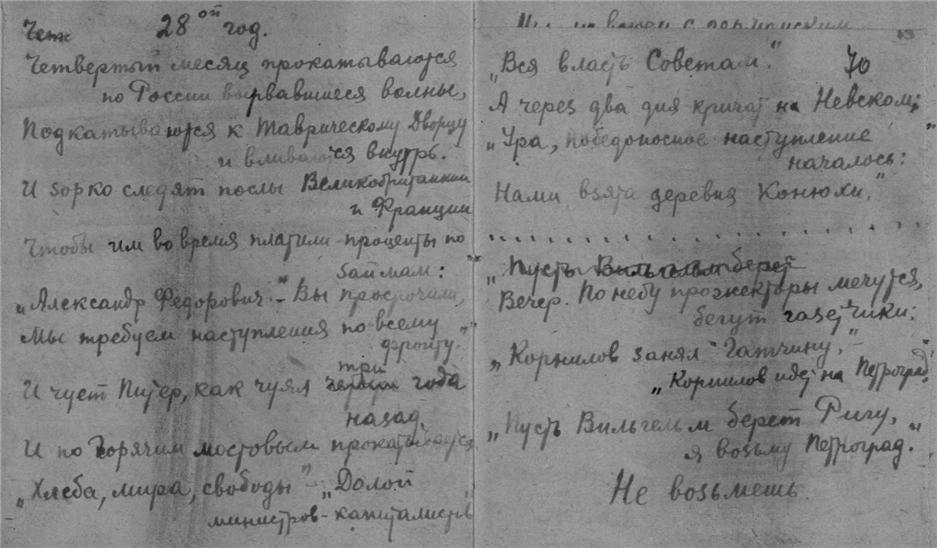 28ой год.
Четвертый месяц прокатываются
по России вырвавшиеся волны,
Подкатываются к Таврическому Дворцу
и вливаются внутрь.
И зорко следят послы Великобритании
и Франции
Чтобы им во время платили проценты по
займам:
„Александр Федорович" – Вы просрочили,
Мы требуем наступления по всему
фронту."
три
И чует Питер, как чуял года
назад,
И по горячим мостовым прокатывается
„Хлеба, мира, свободы" – „Долой
министров-капиталистов"
„Вся власть Советам".
70
А через два дня кричат на Невском:
„Ура, победоносное наступление
началось:
Нами взята деревня Конюхи."
. . . . . . . . . . . . . . . . . . . .
„Пусть Вильгельм берет
Вечер. По небу прожекторы мечутся,
бегут газетчики:
„Корнилов занял Гатчину," –
„Корнилов идет на Петроград"
„Пусть Вильгельм берет Ригу,
я возьму Петроград."
Не возьмешь.